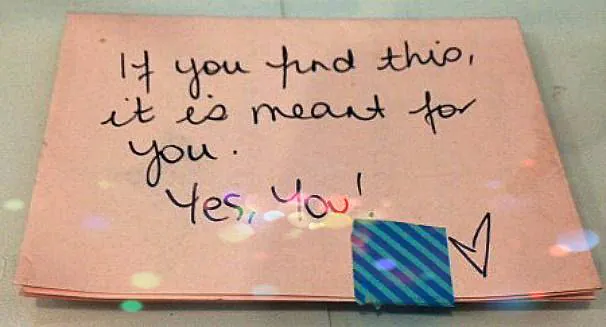 If you find this,
it is meant for
you.
Yes, You!